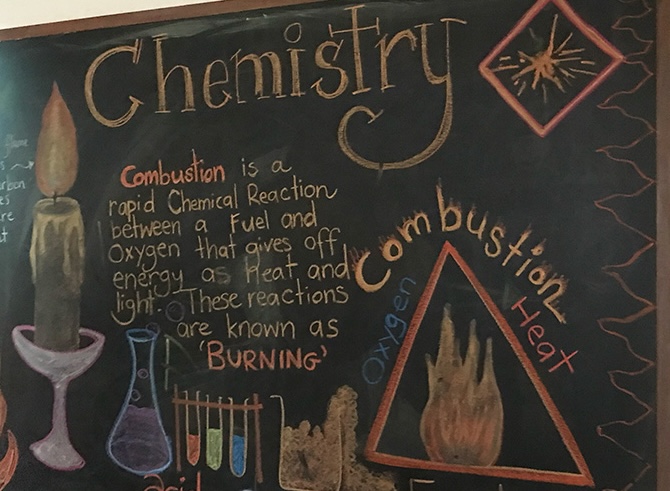 Chemistry
Combustion is a
rapid Chemical Reaction
between a Fuel and
Oxygen that gives off
energy as Heat and
light. These reactions
are known as
'BURNING'
Combustion
Oxygen
Heat